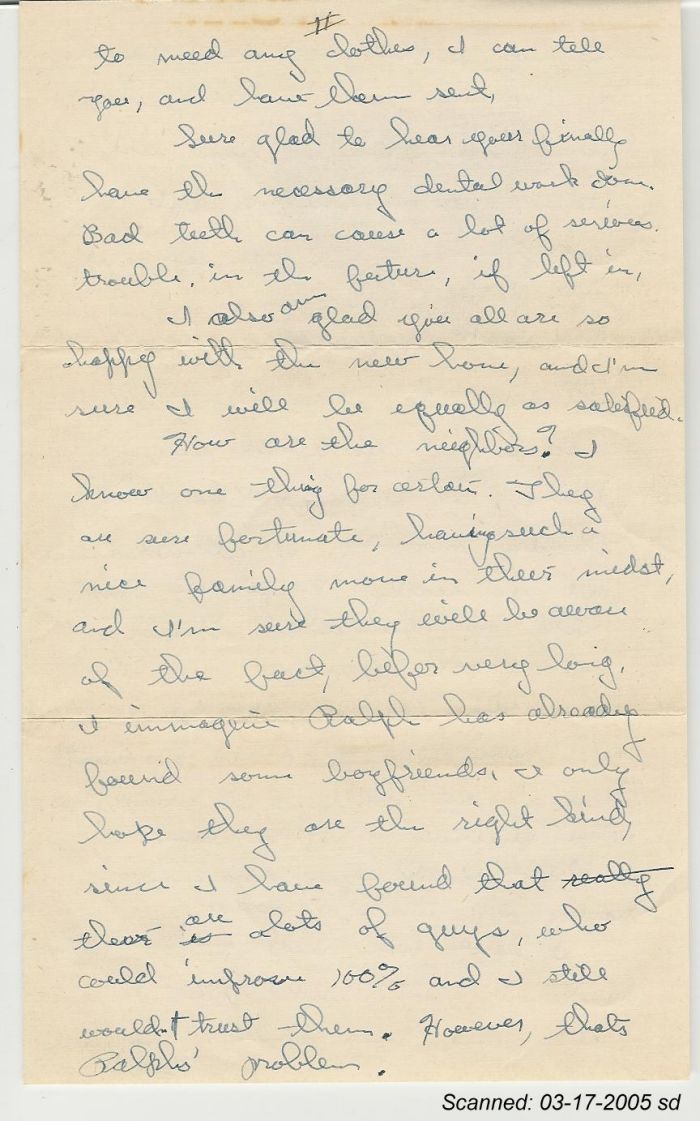 II
to need any clothes, I can tell
you, and have them sent,
Sure glad to hear your finally
have the necessary dental work done.
Bad teeth can cause a lot of serious
trouble, in the future, if left in,
I also am glad you all are so
happy with the new home, and I'm
sure I will be equally as satisfied.
How are the neighbors? I
know one thing for certain. They
are sure fortunate, having such a
nice family move in their midst,
and I'm sure they will be aware
of the fact, befor very long.
I immagine Ralph has already
found some boyfriends, I only
hope they are the right kind,
since I have found that really
there is are alots of guys, who
could improve 100% and I still
wouldn't trust them. However, thats
Ralphs' problem.
Scanned: 03-17-2005 sd